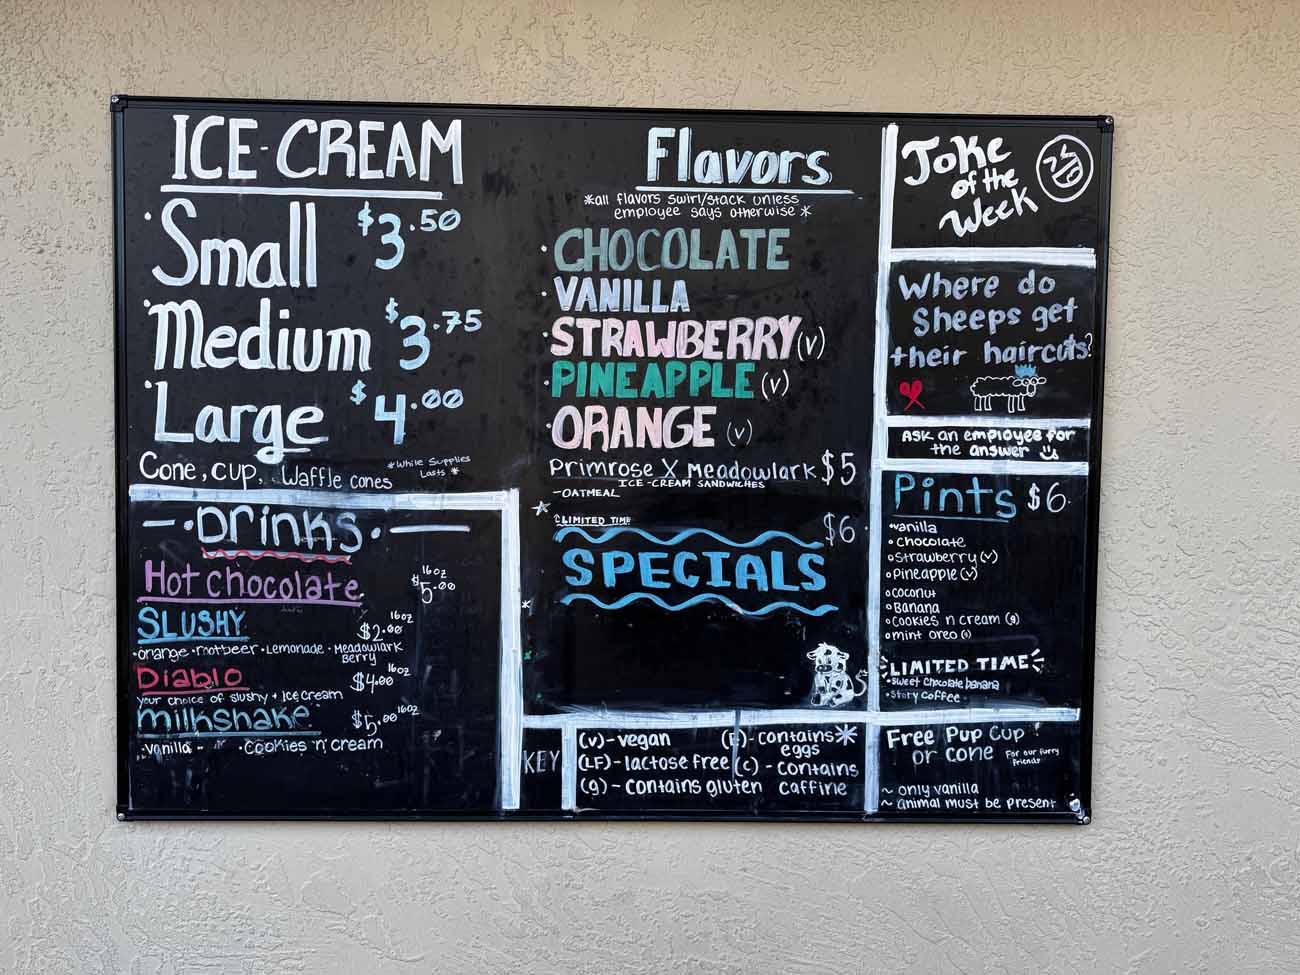 ICE-CREAM
· Small $3.50
· Medium $3.75
· Large $4.00
Cone, cup, Waffle cones
*While Supplies
Lasts *
Drinks
Hot chocolate 16oz $5.00
SLUSHY 16oz $2.00
·orange ·rootbeer ·Lemonade ·Meadowlark
Berry
Diablo 16oz $4.00
your choice of slushy + Ice cream
milkshake $5.00 16oz
·vanilla - ·Cookies 'n' cream
Flavors
*all flavors swirl/stack unless
employee says otherwise *
· CHOCOLATE
· VANILLA
· STRAWBERRY (v)
· PINEAPPLE (v)
· ORANGE (v)
Primrose X Meadowlark $5
ICE-CREAM SANDWICHES
-OATMEAL
LIMITED TIME $6
SPECIALS
KEY
(v)- vegan
(LF)- lactose free
(g)- contains gluten
(E)- contains *
eggs
(c) - contains
caffine
Joke
of the
Week
Where do
Sheeps get
their haircuts?
ASK an employee for
the answer
Pints $6
·vanilla
·chocolate
·Strawberry (v)
·Pineapple (v)
·coconut
·Banana
·cookies n cream (g)
·mint oreo
LIMITED TIME
·Sweet chocolate banana
·Story coffee
Free Pup Cup
or cone
For our furry
friends
~ only vanilla
~ animal must be present